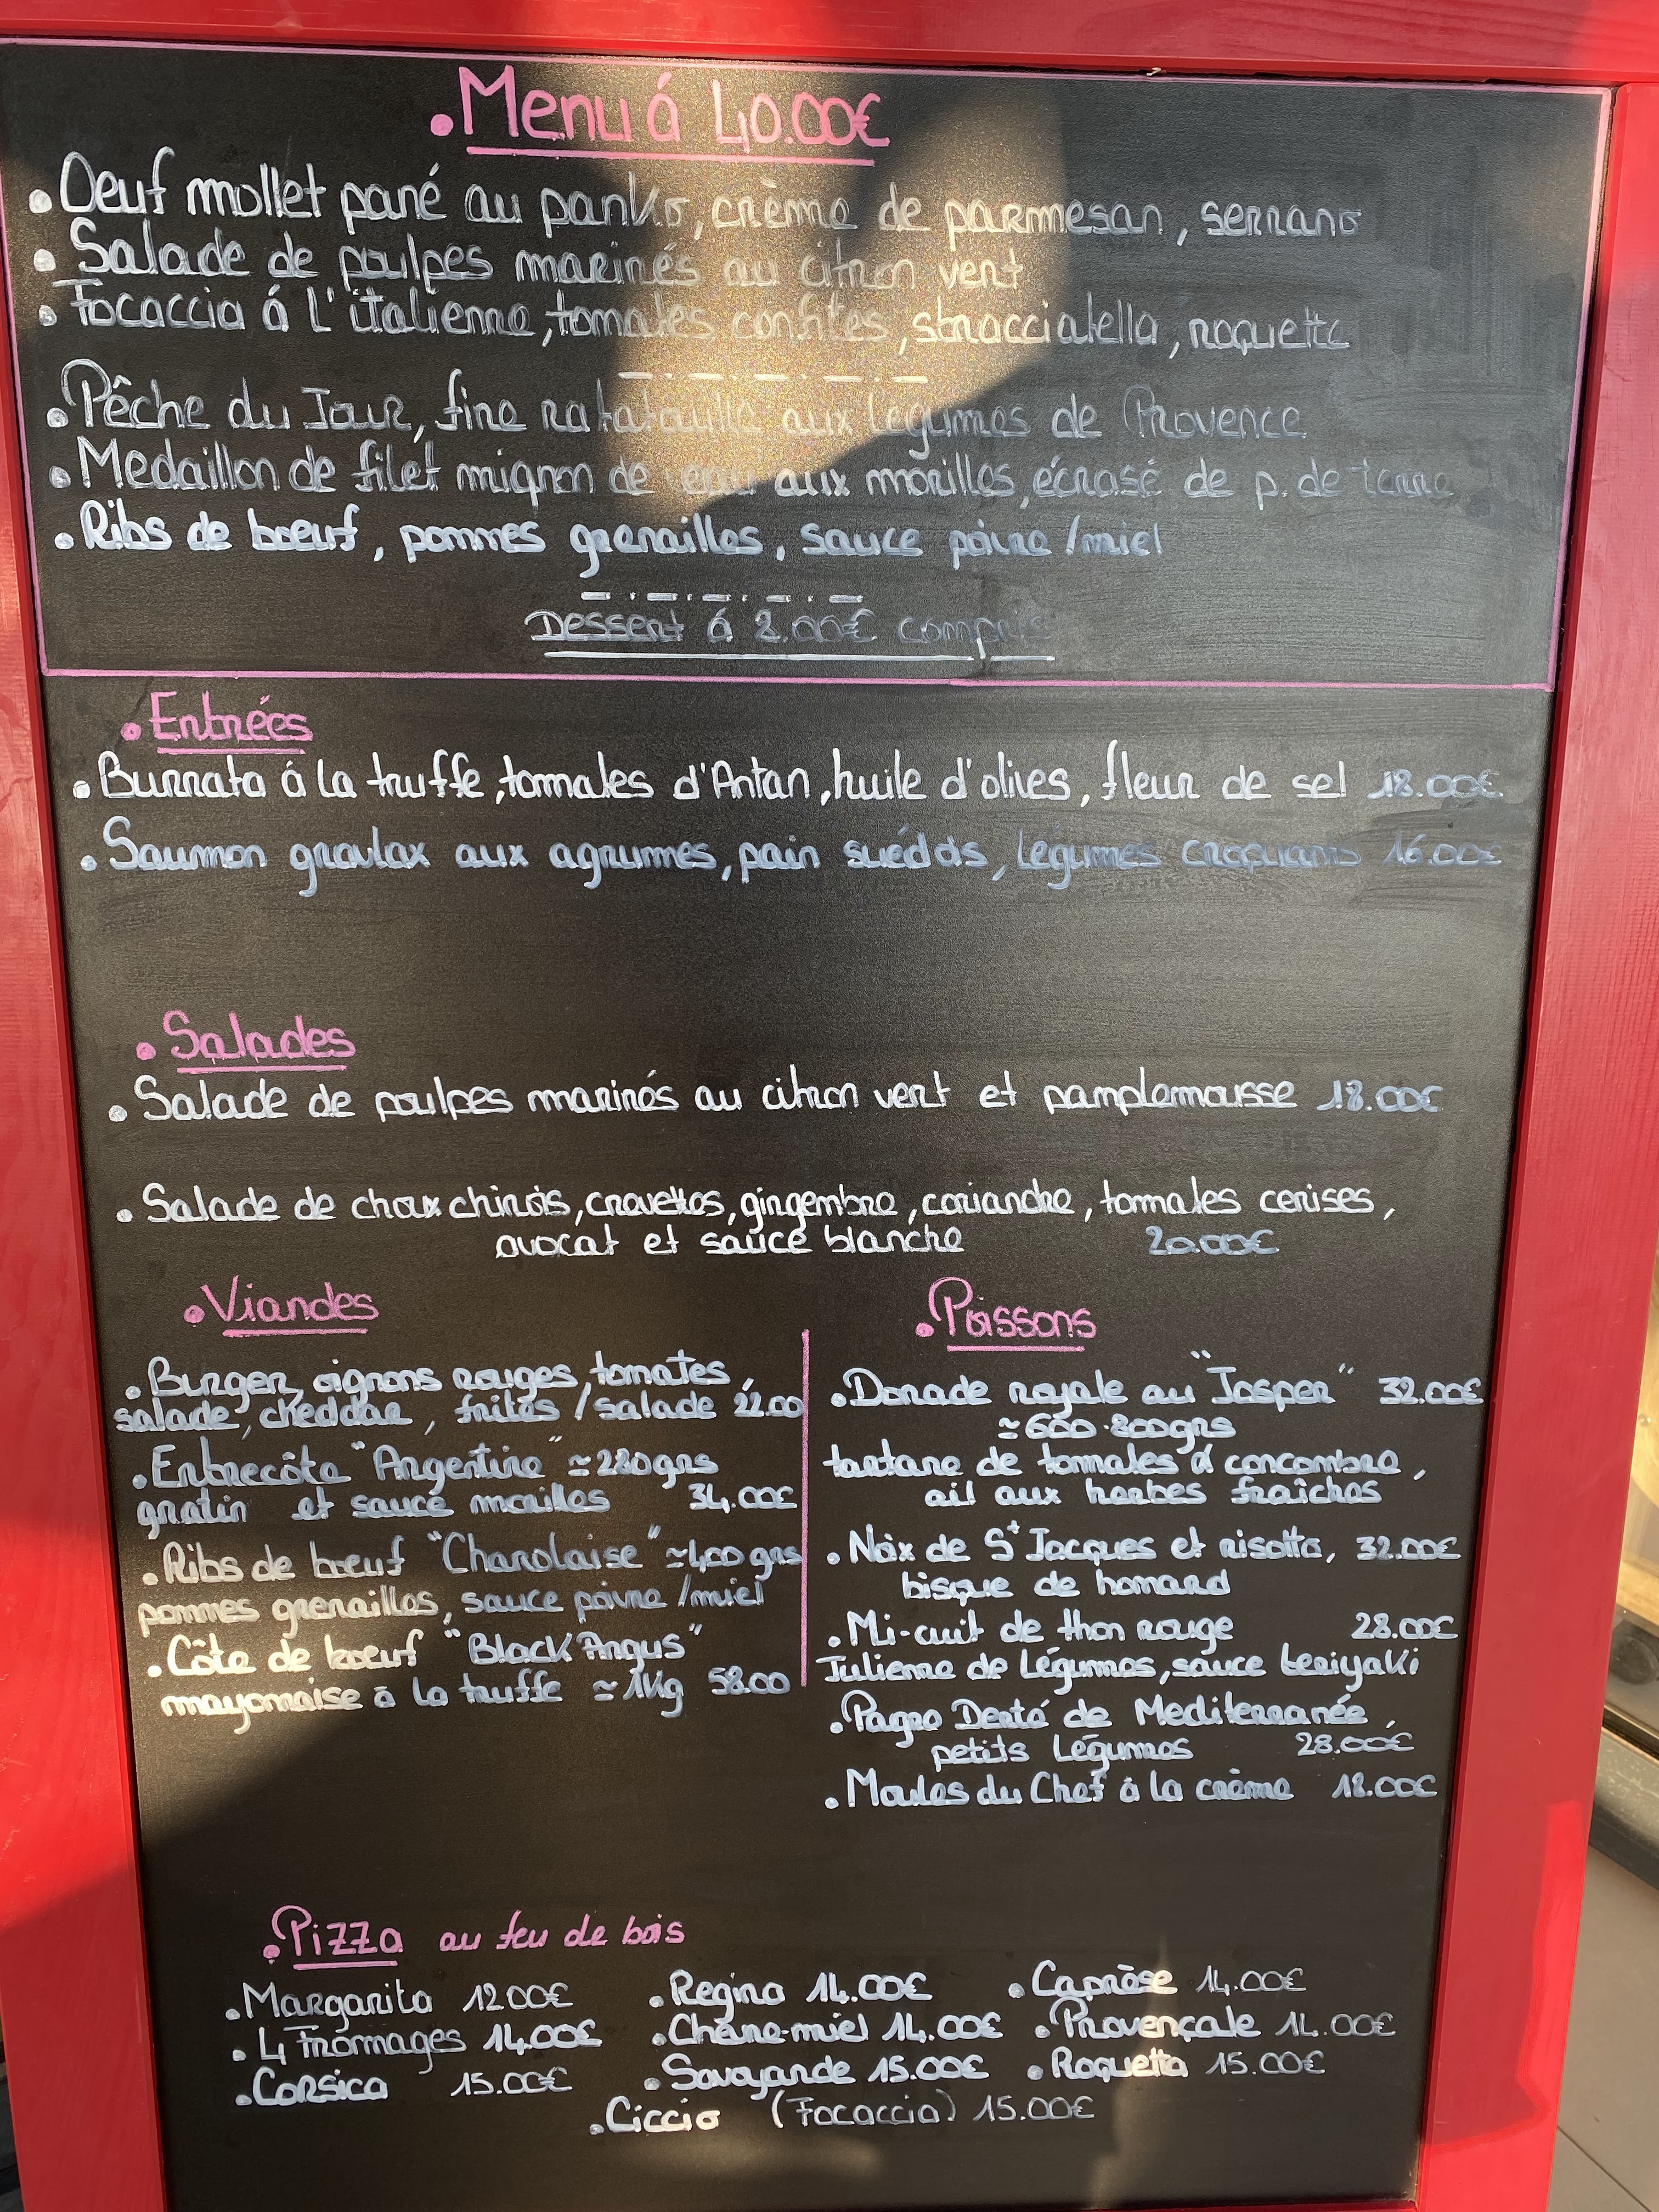 .Menu á 40.00€
.Oeuf mollet pané au panko, crème de parmesan, serrano
.Salade de poulpes marinés au citron vert
.Focaccia á L'italienne, tomates confites, stracciatella, roquette
_._._._._
.Pêche du Jour, fine ratatouille aux légumes de Provence
.Medaillon de filet mignon de aux morilles, écrasé de p. de terre
.Ribs de bœuf, pommes grenailles, sauce poivre/miel
_._._._._
Dessert á 8.00€ compris
.Entrées
.Burrata á la truffe, tomates d'Antan, huile d'olives, fleur de sel 18.00€
.Saumon gravlax aux agrumes, pain suédois, légumes croquants 16.00€
.Salades
.Salade de poulpes marinés au citron vert et pamplemousse 18.00€
.Salade de choux chinois, crevettes, gingembre, coriandre, tomates cerises,
avocat et sauce blanche 20.00€
.Viandes
.Burger, oignons rouges, tomates,
salade, cheddar, frites/salade 22.00
.Entrecôte "Argentine" ≃280grs
gratin et sauce morilles 34.00€
.Ribs de bœuf "Charolaise" ≃400grs
pommes grenailles, sauce poivre/miel
.Côte de bœuf "Black Angus"
mayonnaise à la truffe ≃1Kg 58.00
.Poissons
.Dorade royale au "Josper" 32.00€
≃600-800grs
tartare de tomates & concombre,
ail aux herbes fraîches
.Noix de St Jacques et risotto, 32.00€
bisque de homard
.Mi-cuit de thon rouge 28.00€
Julienne de Légumes, sauce teriyaki
.Pagre Denté de Mediterranée,
petits Légumes 28.00€
.Moules du Chef à la crème 18.00€
.Pizza au feu de bois
.Margarita 12.00€ .Regina 14.00€ .Caprèse 14.00€
.4 Fromages 14.00€ .Chèvre-miel 14.00€ .Provençale 14.00€
.Corsica 15.00€ .Savoyarde 15.00€ .Roquetta 15.00€
.Ciccio (Focaccia) 15.00€